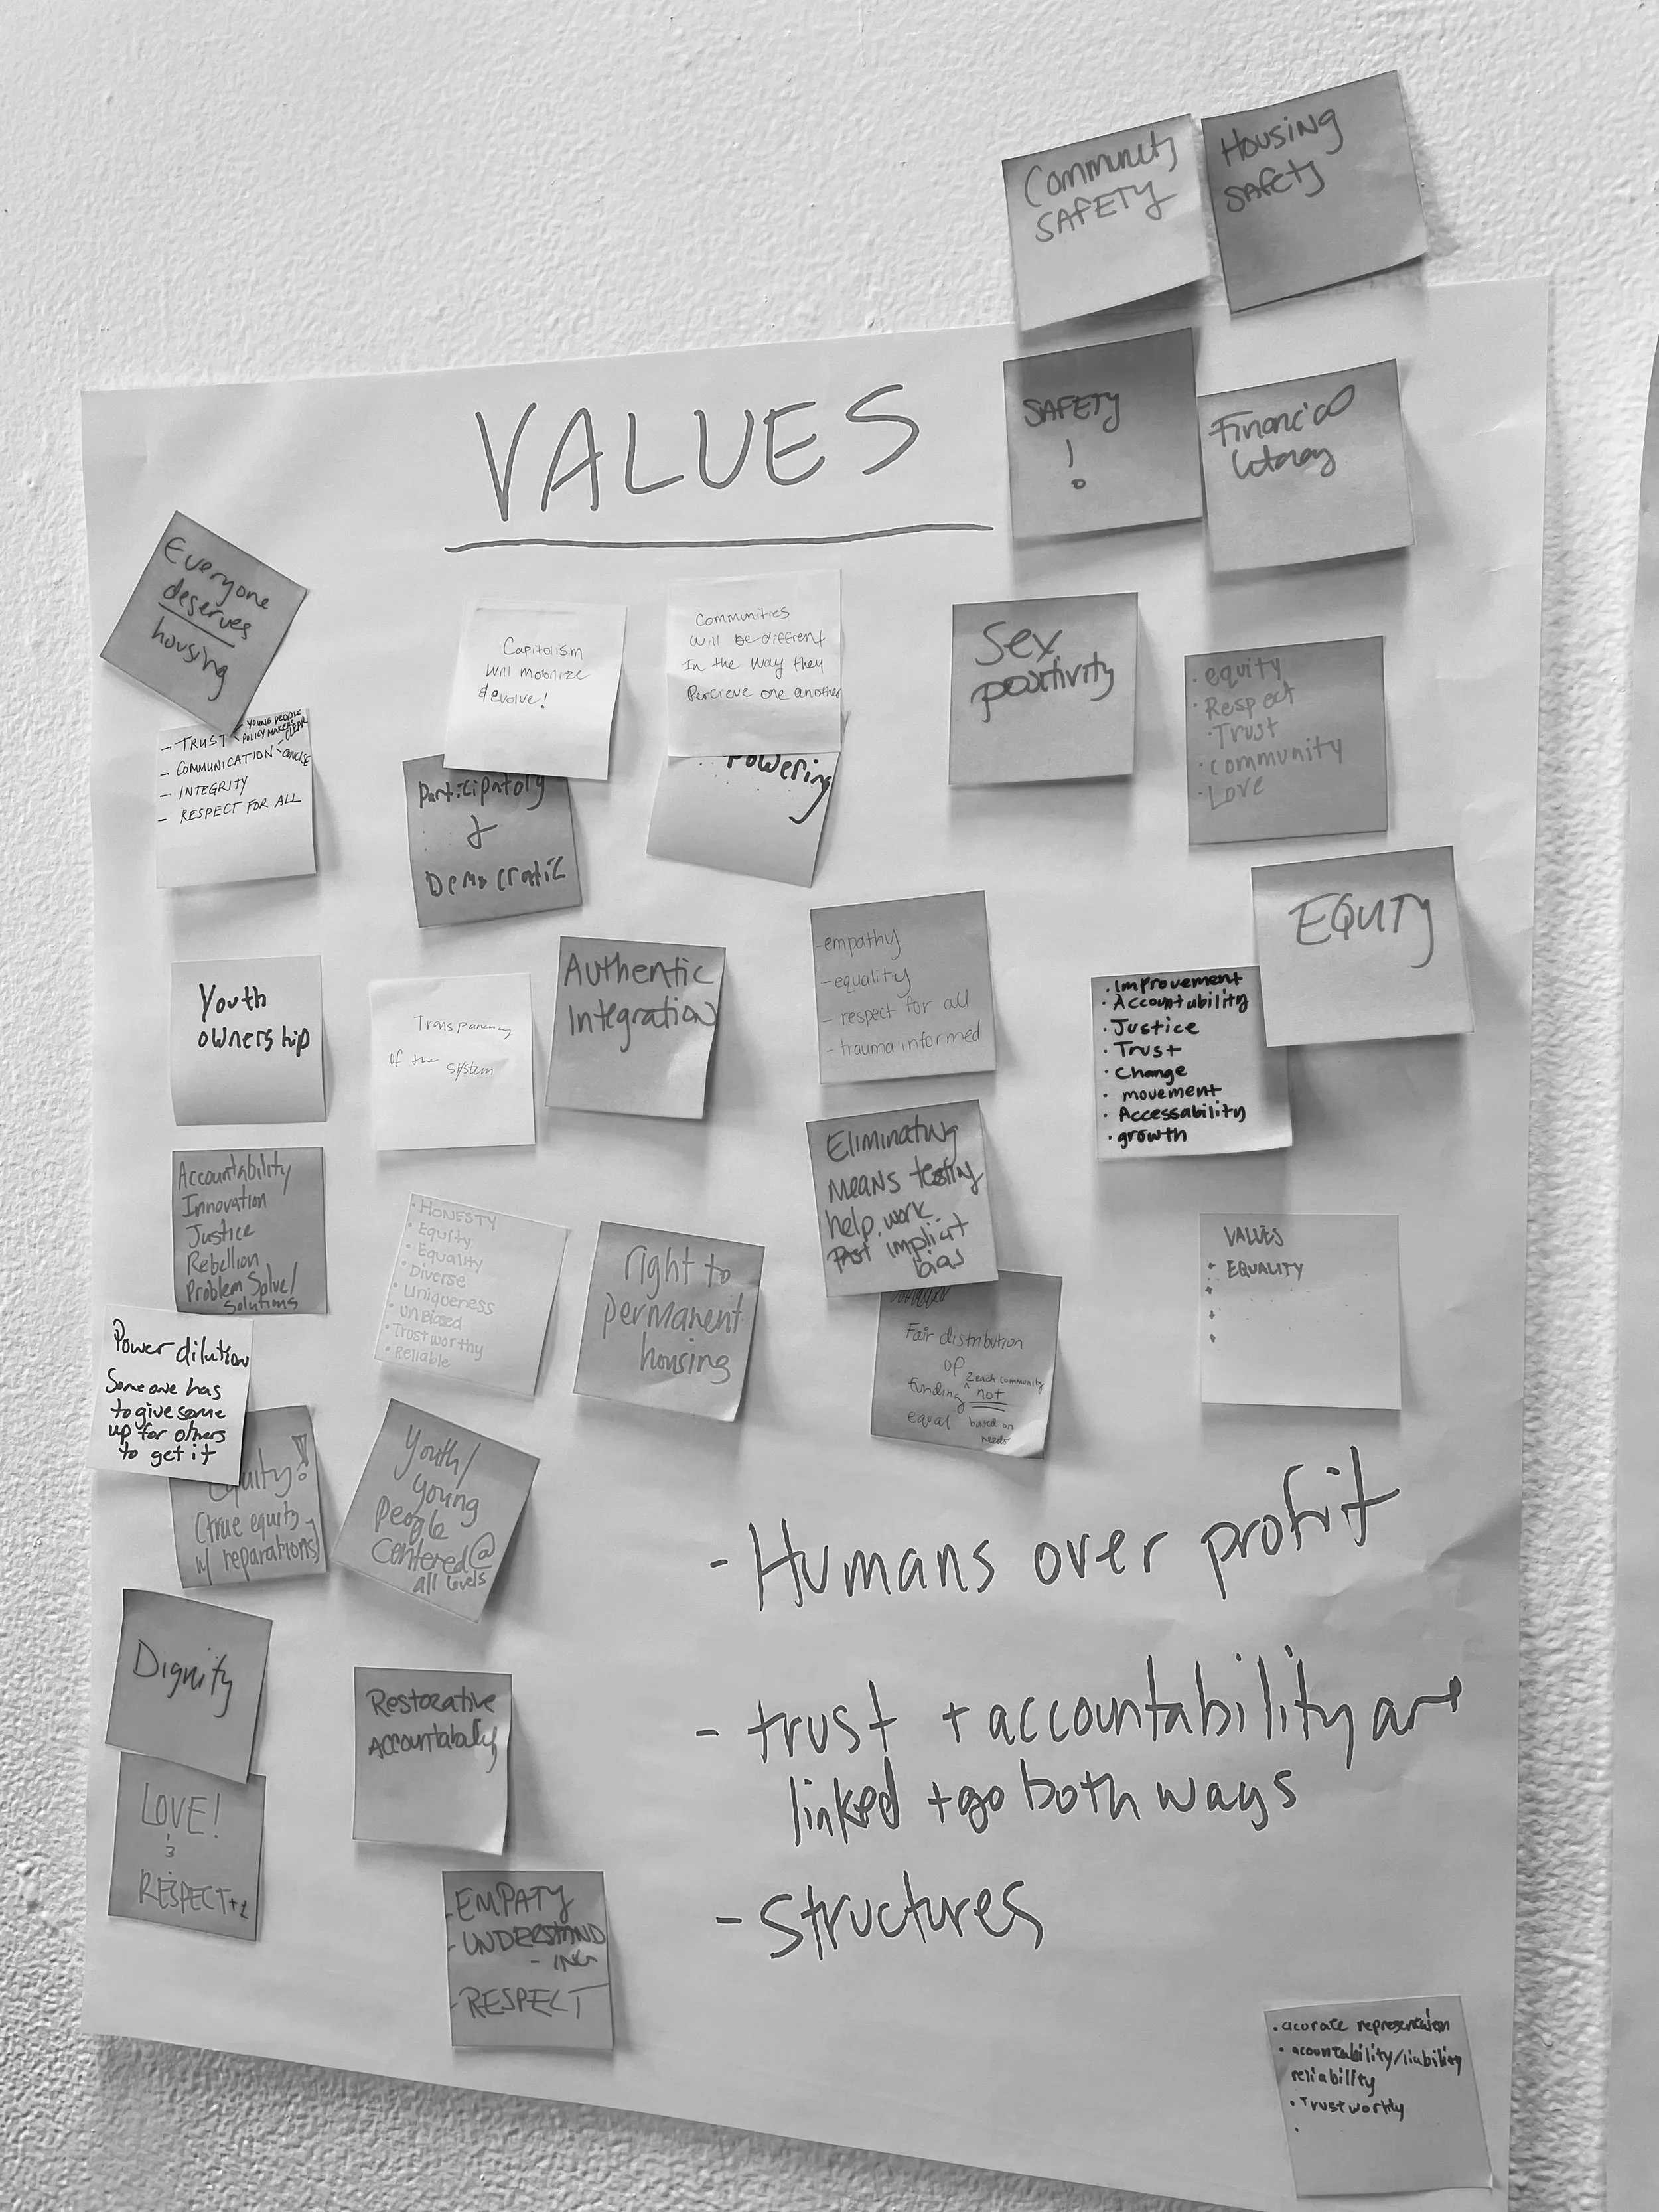 Community
SAFETY
Housing
SAfety
SAFETY
!
Financial
Literacy
VALUES
Everyone
deserves
housing
Capitolism
will mobilize
& evolve!
Communities
will be diffrent
In the way they
Percieve one another
Sex
positivity
· equity
· Respect
· Trust
· community
· Love
- TRUST YOUNG PEOPLE
POLICY MAKERS
- COMMUNICATION - CLEAR
- INTEGRITY
- RESPECT FOR ALL
Participatory
&
Democratic
Powering
EQUITY
Youth
ownership
Transparency
of the system
Authentic
Integration
- empathy
- equality
- respect for all
- trauma informed
· Improvement
· Accountability
· Justice
· Trust
· Change
· movement
· Accessability
· growth
Accountability
Innovation
Justice
Rebellion
Problem Solve/
Solutions
· HONESTY
· Equity
· Equality
· Diverse
· Uniqueness
· UnBiased
· Trustworthy
· Reliable
right to
permanent
housing
Eliminating
Means testing
help work
Past implicit
bias
VALUES
· EQUALITY
Fair distribution
of
funding 2 each community
not
equal based on
needs
Power dilution
Someone has
to give some
up for others
to get it
Equity!!
(true equity
w/ reparations)
Youth/
young
People
Centered @
all levels
- Humans over profit
- trust + accountability are
linked + go both ways
- structures
Dignity
Restorative
Accountability
LOVE!
&
RESPECT
- EMPATY
- UNDERSTAND
- ING
- RESPECT
· acurate representaion
· acountability/liability
reliability
· Trustworthy
·